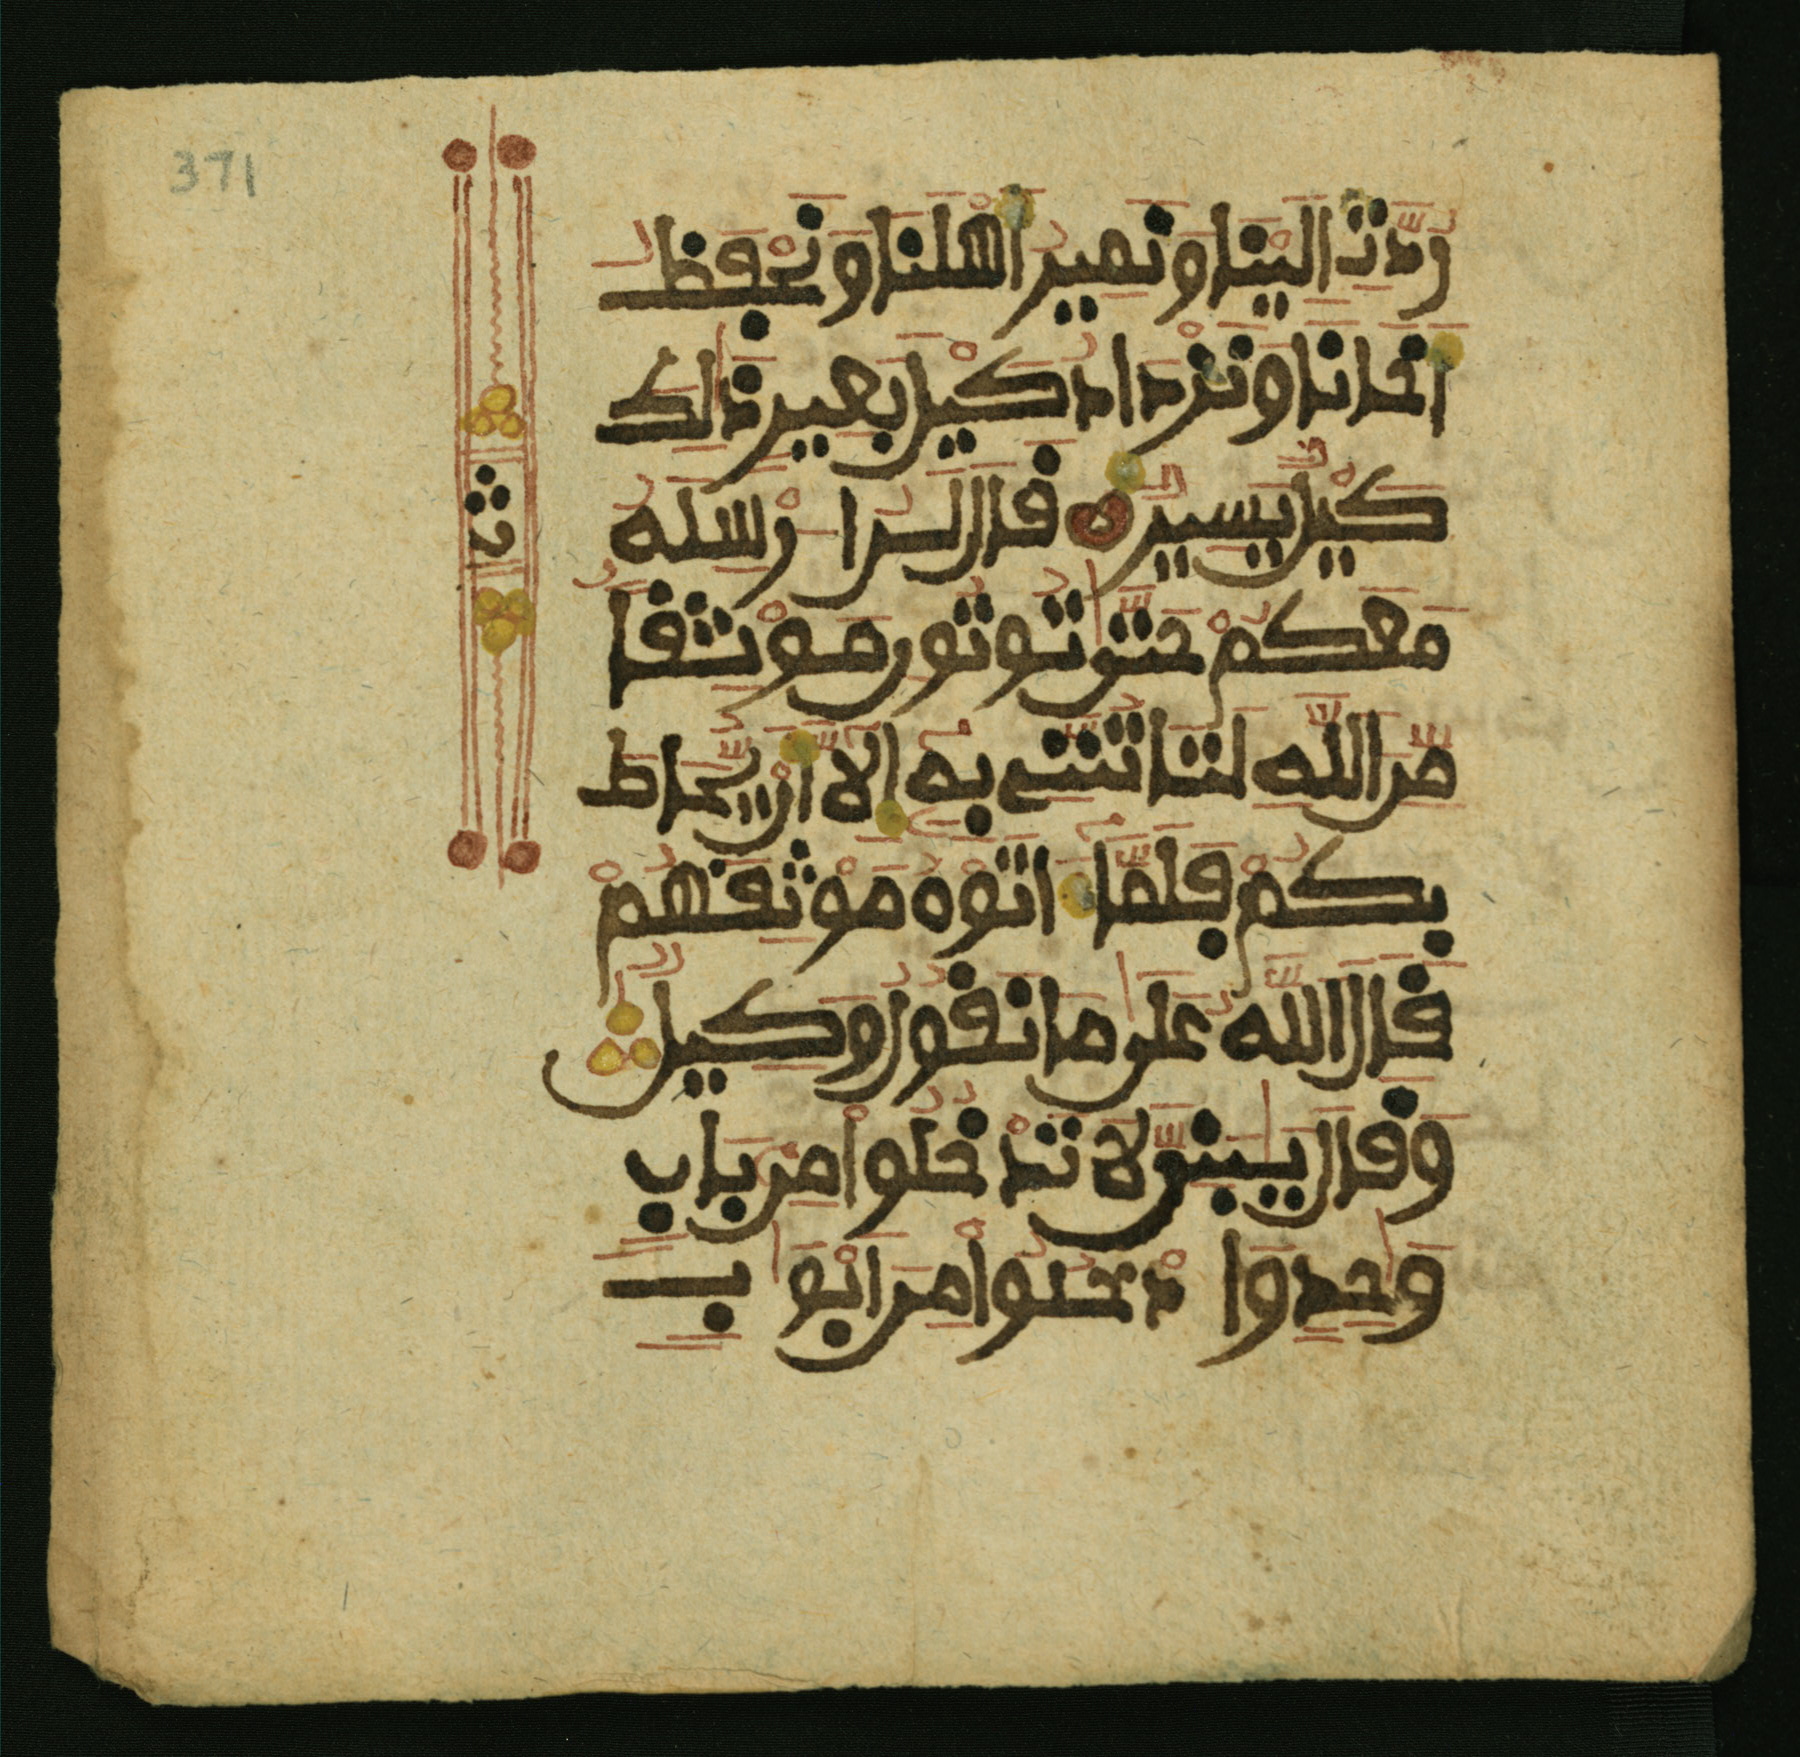 371
رُدَّتِ اِلَيْنَا وَنَمِيرُ أَهْلَنَا وَنَحْفَظُ
أَخَانَا وَنَزْدَادُ كَيْلَ بَعِيرٍ ذَٰلِكَ
كَيْلٌ يَسِيرٌ قَالَ لَنُ ارْسِلَهُ
مَعَكُمْ حَتَّىٰ تُوتُونِ مَوْثِقًا
مِّنَ اللَّهِ لَتَاتُنَّنِے بِهِ إِلَّا أَنْ يُّحَاطَ
بِكُمْ فَلَمَّا ءَاتَوْهُ مَوْثِقَهُمْ
قَالَ اللَّهُ عَلَىٰ مَا نَقُولُ وَكِيلٌ
وَقَالَ يَٰبَنِيَّ لَا تَدْخُلُوا مِنْ بَابٍ
وَٰحِدٍ وَادْخُلُوا مِنَ ابْوَٰبٍ
ث